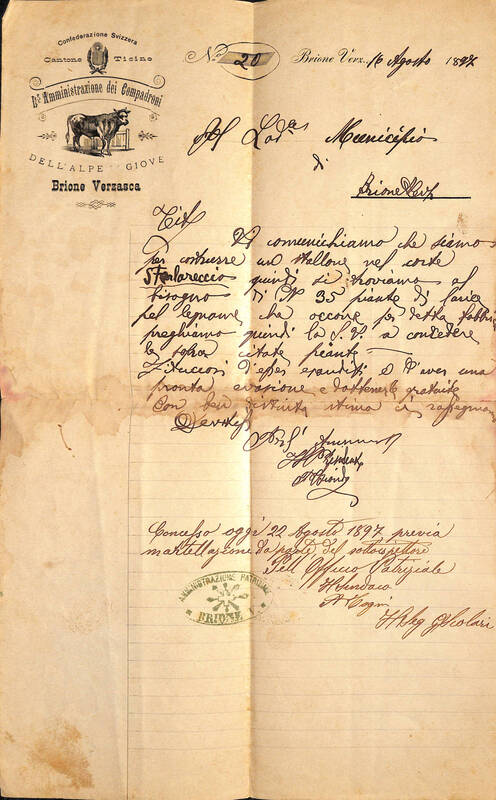 Confederazione Svizzera
Cantone Ticino
Amministrazione dei Compadroni
DELL'ALPE GIOVE
Brione Verzasca
No. 20 Brione Verz. 16 Agosto 1897
Al Lod. Municipio
di
Brione Verz
Tit
Vi comunichiamo che siamo
per costrurre un stallone nel corte
Starlareccio quindi si troviamo al
bisogno di N 35 piante di larice
pel legname che occorre per detta fabbri
preghiamo quindi la S. V. a concedere
le sopra citate piante
Fiduciosi d'esser esauditi e d'aver una
pronta evasione e d'ottenerle gratuite
Con ben distinta stima ci rassegniamo
Devotis
Per l'Ammini
Il Presidente
Concesso oggi 22 Agosto 1897 previa
martellazione da parte del sottospettore
Pell Officio Patriziale
Il Sindaco
Il Seg G Scolari
AMMINISTRAZIONE PATRIZIALE
BRIONE V.